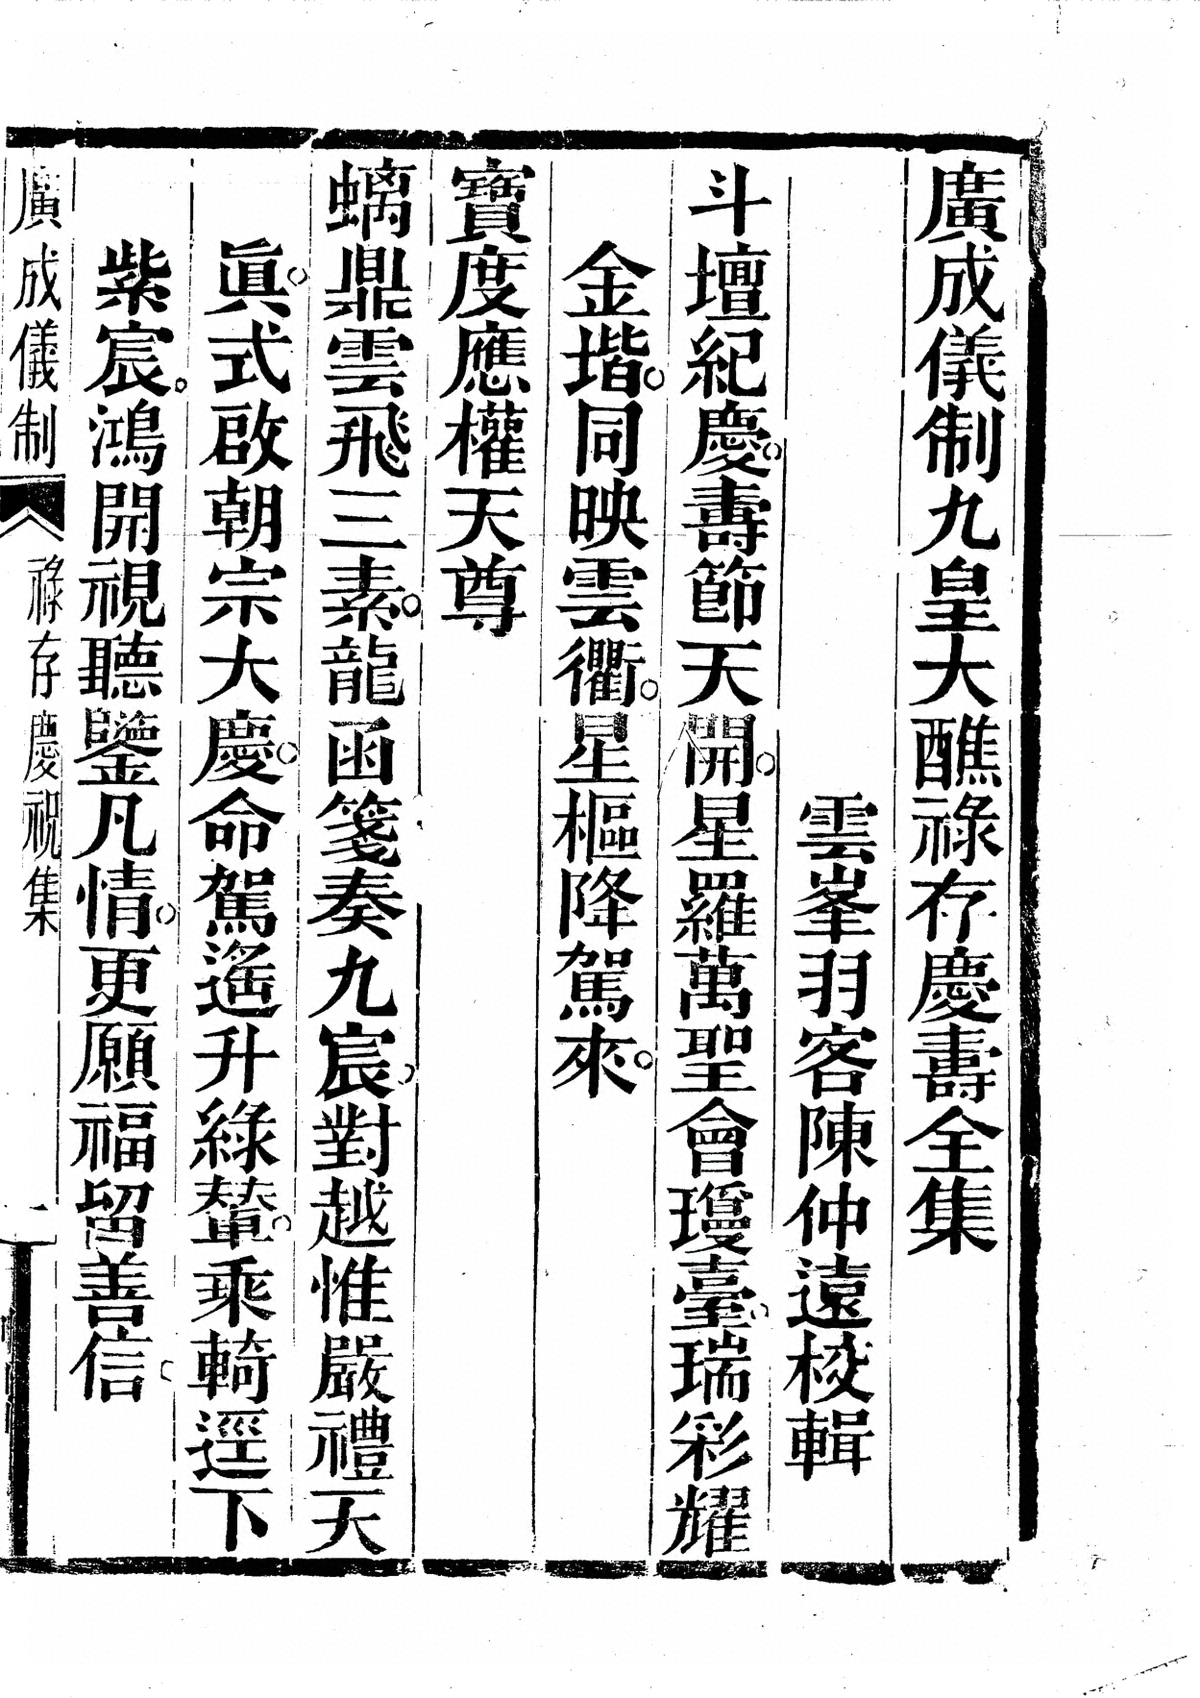 廣成儀制九皇大醮祿存慶壽全集
雲峯羽客陳仲遠校輯
斗壇紀慶。壽節天開。星羅萬聖會瓊臺。瑞彩耀
金堦。同映雲衢。星樞降駕來。
寶度應權天尊
螭鼎雲飛三素。龍函箋奏九宸。對越惟嚴禮天
眞。式啟朝宗大慶。命駕遙升綠輦。乘輢逕下
紫宸。鴻開視聽鑒凡情。更願福留善信。
廣成儀制 祿存慶祝集 一